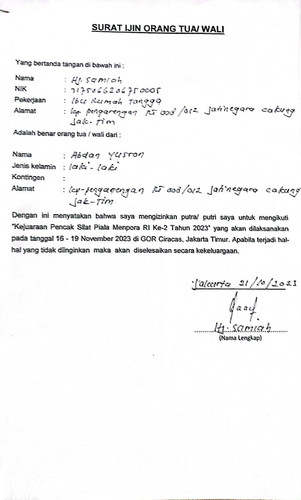 SURAT IJIN ORANG TUA/ WALI
Yang bertanda tangan di bawah ini :
Nama : Hj. Samiah
NIK : 3175066206750005
Pekerjaan : Ibu Rumah Tangga
Alamat : kp pengarengan Rt 003/012 Jatinegara cakung
Jak-Tim
Adalah benar orang tua / wali dari :
Nama : Abdan Yusron
Jenis kelamin : laki-laki
Kontingen :
Alamat : kp-pengarengan Rt 003/012 Jatinegara cakung
Jak-Tim
Dengan ini menyatakan bahwa saya mengizinkan putra/ putri saya untuk mengikuti
"Kejuaraan Pencak Silat Piala Menpora RI Ke-2 Tahun 2023" yang akan dilaksanakan
pada tanggal 16 - 19 November 2023 di GOR Ciracas, Jakarta Timur. Apabila terjadi hal-
hal yang tidak diinginkan maka akan diselesaikan secara kekeluargaan.
Jakarta 21/10/2023
Hj. Samiah
(Nama Lengkap)